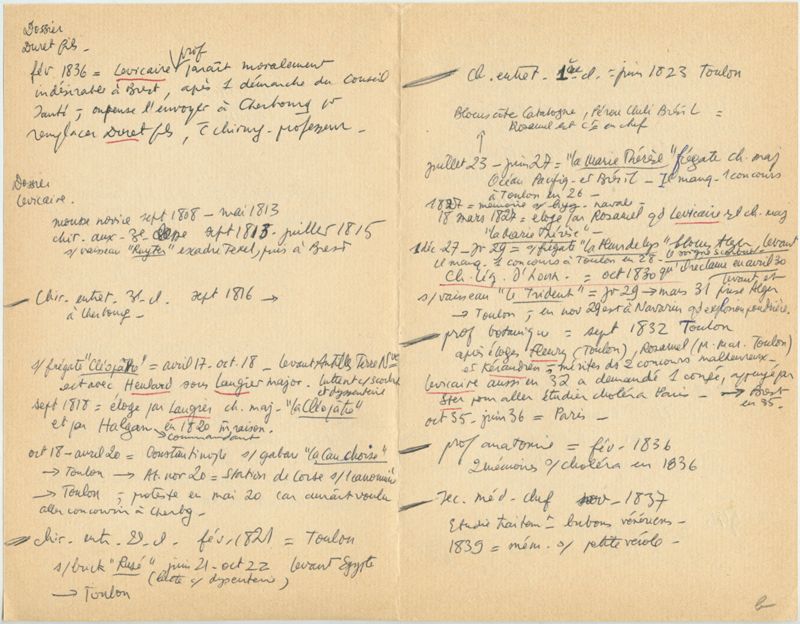 Dossier
Duret fils -
prof
fév 1836 = Levicaire paraît moralement
indésirable à Brest, après 1 démarche du Conseil
Santé ; on pense l'envoyer à Cherbourg pr
remplacer Duret fils, chirurg - professeur -
Dossier
Levicaire.
mousse novice sept 1808 - mai 1813
chir. aux - 3e sept 1813 - juillet 1815
s/ vaisseau "Ruyter" escadre Texel, puis à Brest
Chir. entret. 3e cl. sept 1816 →
à Cherbourg -
s/ frégate "Cléopâtre" = avril 17 - oct. 18 - Levant Antilles Terre Nve
est avec Heulard sous Laugier major - luttent c/ scorbut
et dysenterie
sept 1818 = éloge par Laugier ch. maj - "la Cléopâtre"
et par Halgan en 1820 m̂ raison.
commandant
oct 18 - avril 20 = Constantinople s/ gabare "la Cauchoise"
→ Toulon → At. nov 20 = Station de Corse s/ 1 canonnière
→ Toulon ; proteste en mai 20 car aurait voulu
aller concourir à Cherbg -
Chir. entr. 2e cl. fév. 1821 = Toulon
s/ brick "Rusé" juin 21 - oct 22 Levant Egypte
(lutte c/ dysenterie)
→ Toulon
Ch. entret. 1ère cl. = juin 1823 Toulon
Blocus côte Catalogne, Pérou Chili Brésil =
Rosamel est Ct en chef
juillet 23 - juin 27 = "la Marie Thérèse" frégate ch. maj
Océan Pacifiq - et Brésil - Il manq - 1 concours
à Toulon en 26 -
1827 = mémoire s/ hyg - navale -
18 mars 1827 = éloge par Rosamel qd Levicaire est ch. maj
"la Marie Thérèse" -
1 déc. 27 - Jr 29 = s/ frégate "la Fleur de lys" blocus Alger, Levant
il manq - 1 concours à Toulon en 28 -
Ch. Lég. d'Honn. = oct 1830 qu'il réclame en avril 30
s/ vaisseau "le Trident" = Jr 29 → mars 31 Levant et prise Alger
→ Toulon ; en nov 29 est à Navarin qd explosion poudrière.
prof botanique = sept 1832 Toulon
après éloges Fleury (Toulon), Rosamel (M. mar. Toulon)
et Kéraudren = mérites ds 2 concours malheureux -
Levicaire aussi en 32 a demandé 1 congé, appuyé par
pour aller étudier choléra Paris - → Brest
en 35.
oct 35 - juin 36 = Paris -
prof anatomie = fév - 1836
2 mémoires s/ choléra en 1836
Sec. méd - chef nov - 1837
Etudie traitemt bubons vénériens -
1839 = mém. s/ petite vérole -